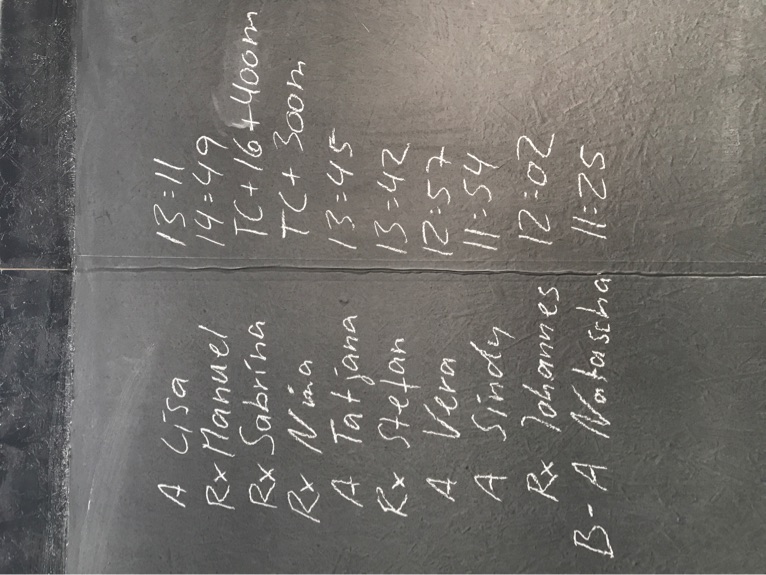 A Lisa 13:11
Rx Manuel 14:49
Rx Sabrina TC+16+400m
Rx Nina TC+300m
A Tatjana 13:45
Rx Stefan 13:42
A Vera 12:57
A Sindy 11:54
Rx Johannes 12:02
B-A Natascha 11:25